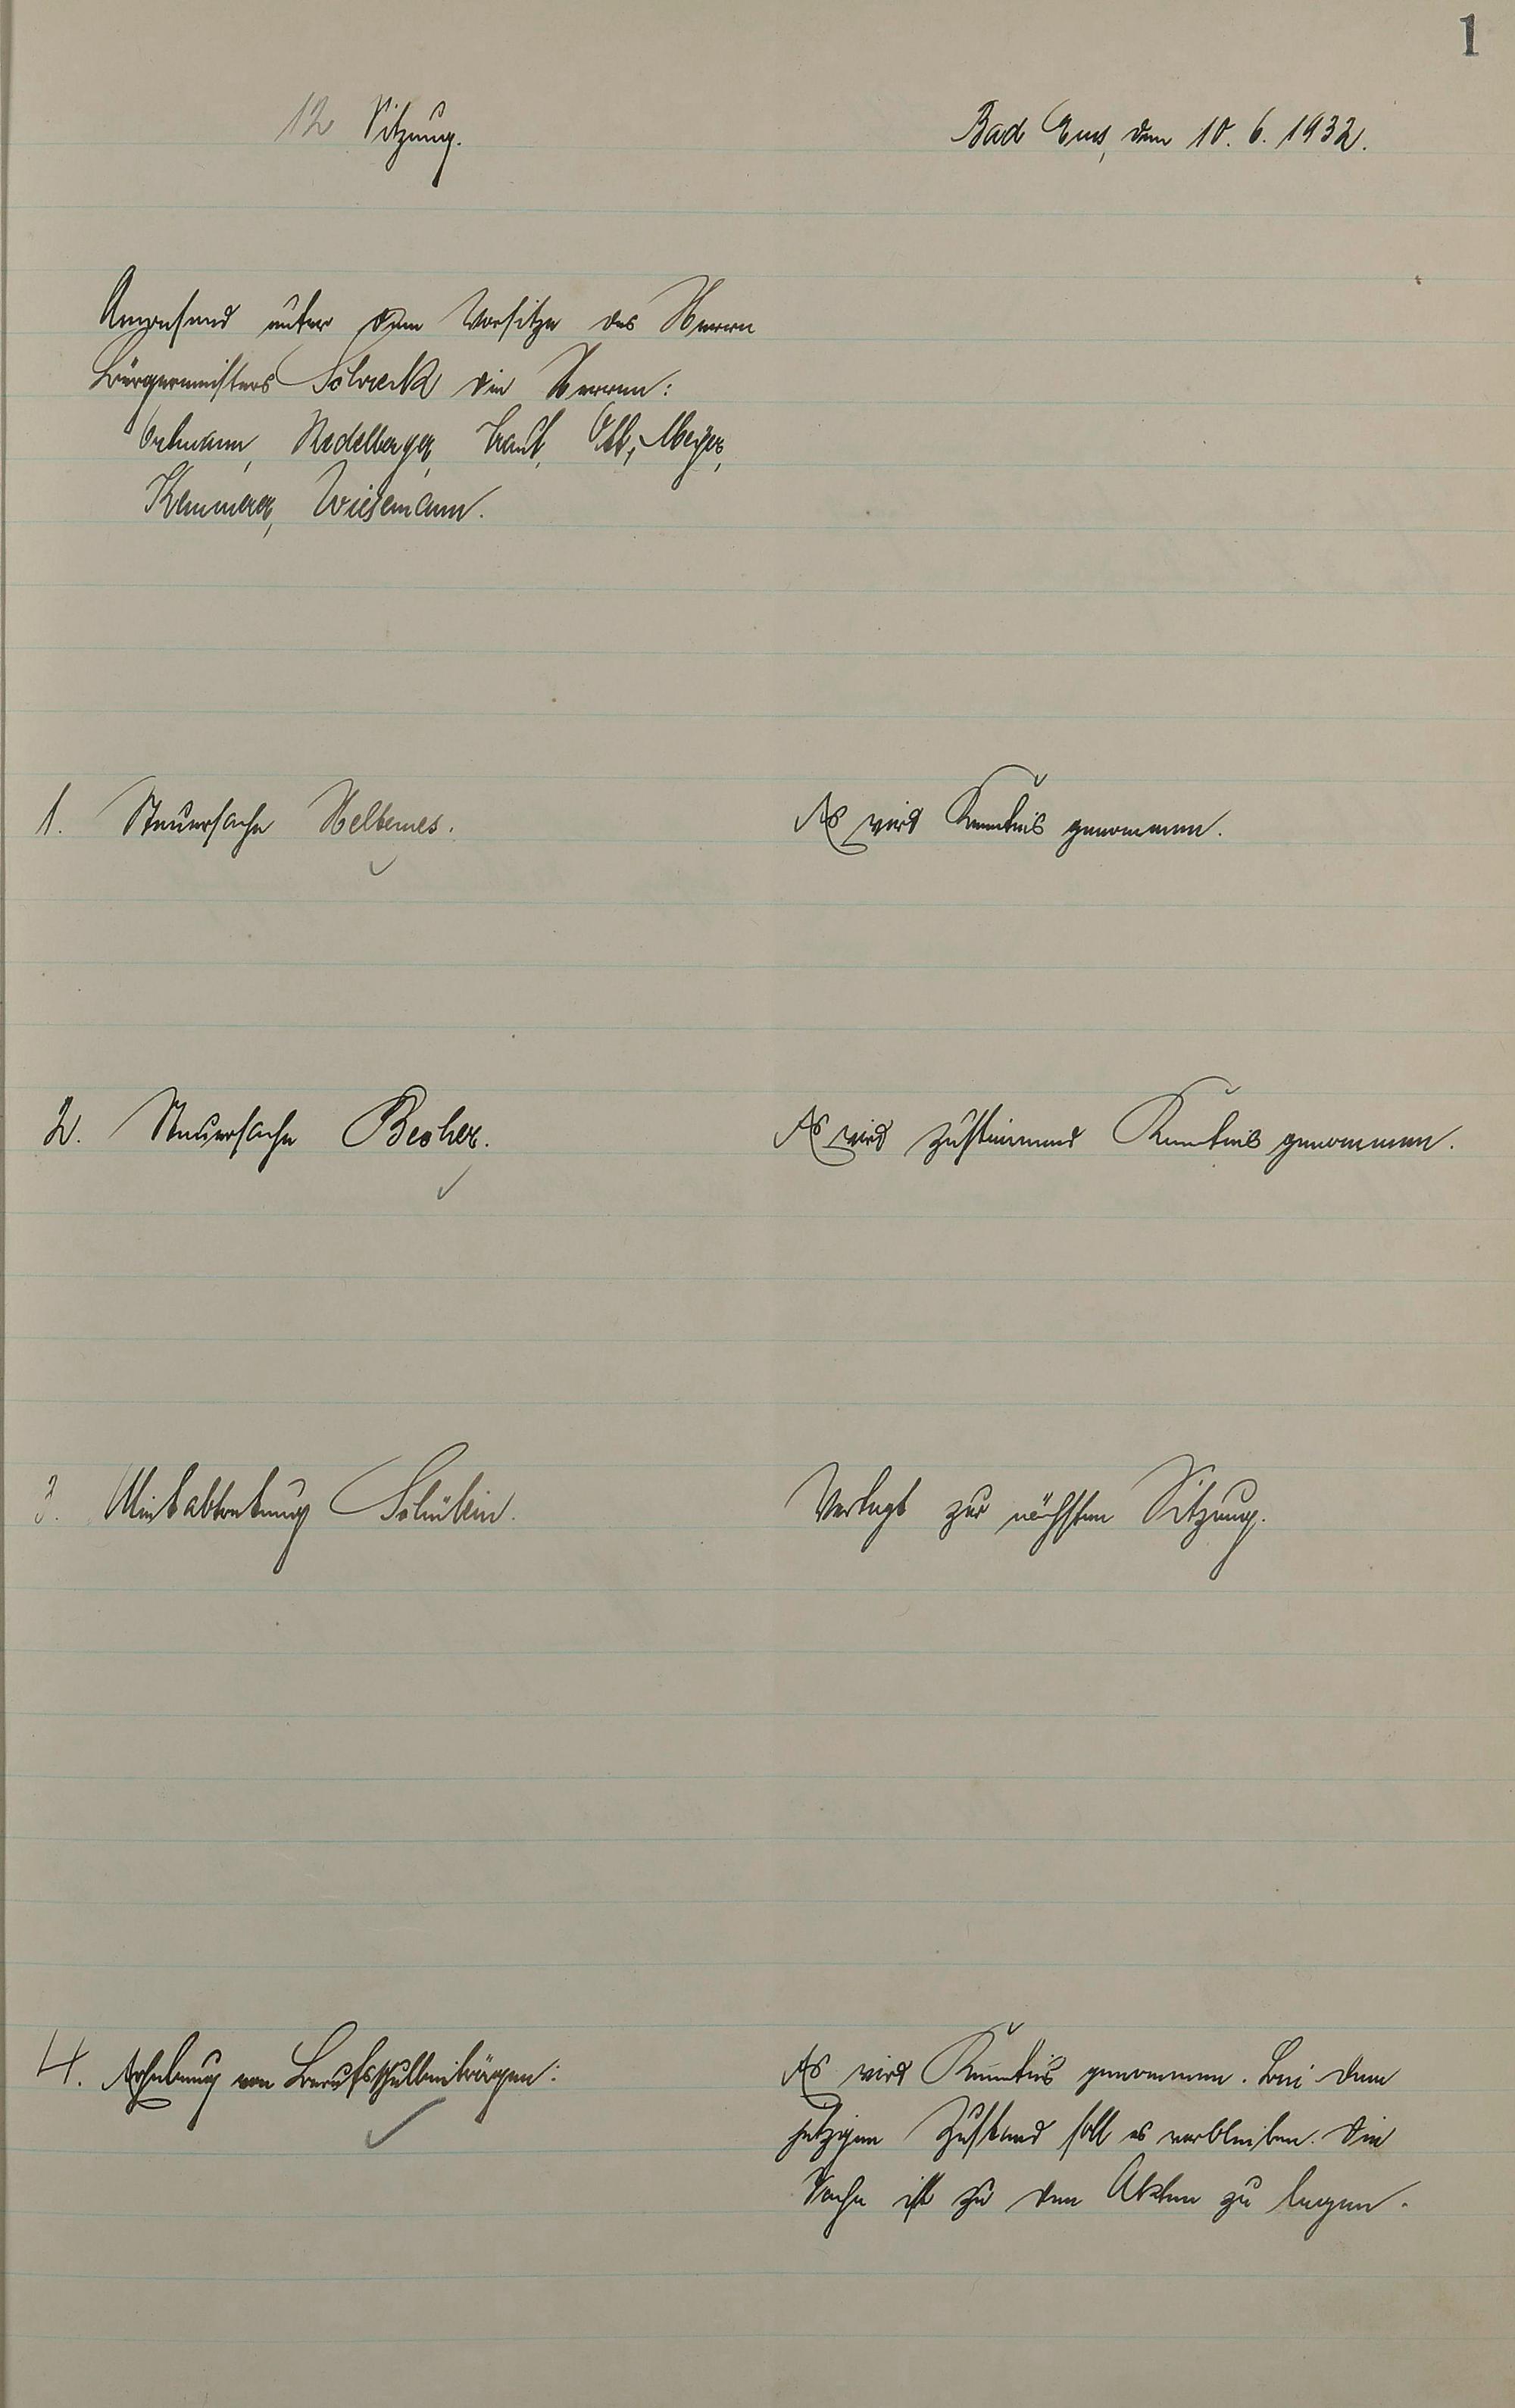 1
12 Sitzung.
Bad Ems, den 10. 6. 1932.
Anwesend unter dem Vorsitze des Herrn
Bürgermeisters Schreck die Herren:
Ortmann, Nedelberger, Traut, Ott, Meyer,
Kemmerer, Wiesemann.
1. Steuersache Helbemes.
Es wird Kenntnis genommen.
2. Steuersache Becher.
Es wird zustimmend Kenntnis genommen.
3. Mietabtretung Schülein.
Vertagt zur nächsten Sitzung.
4. Erhebung von Berufsschulbeiträgen:
Es wird Kenntnis genommen. Bei dem
jetzigen Zustand soll es verbleiben. Die
Sache ist zu den Akten zu legen.